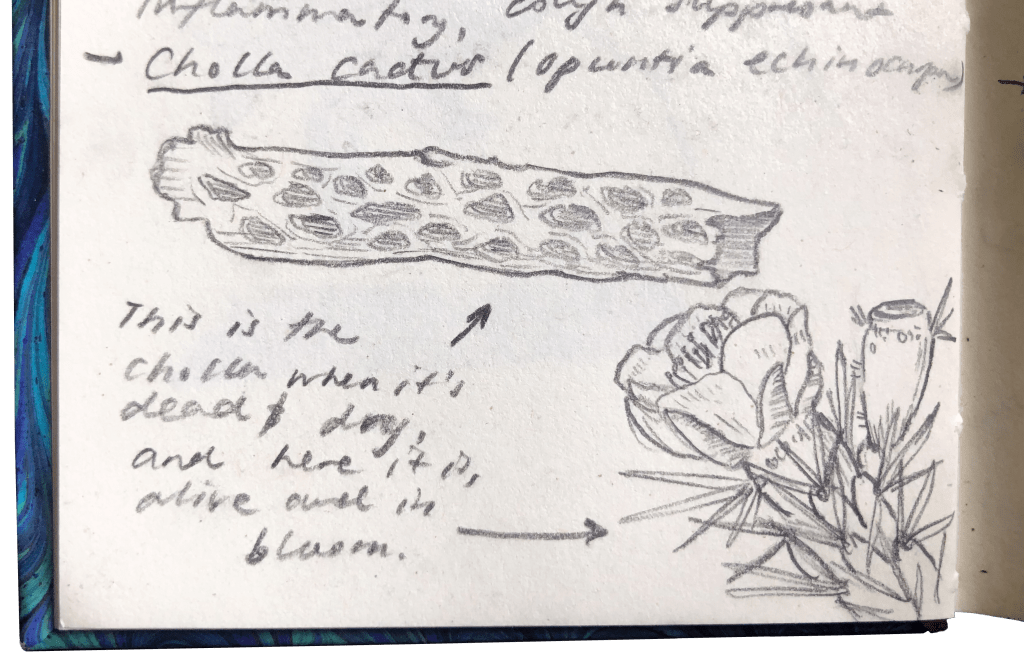 inflammatory, cough suppressant
- Cholla cactus (opuntia echinocarpa)
This is the
cholla when it's
dead & dry,
and here it is,
alive and in
bloom.